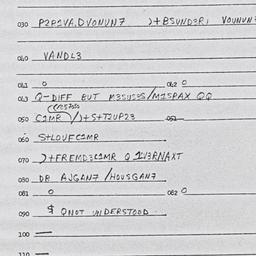 030 P2P1VA.DVONUN7 )+BSUNDER, VOUNUN
040 VANDL3
041 0 042 0
043 Q-DIFF BUT M3SUS3S/M1SPAX QQ
050 C1MR /)+S+T2UP23 052
060 S+LOUFC1MR
070 )+FREMD3C1MR Q 1V3RNAXT
080 DB AJGAN7 /HOUSGAN7
081 0 082 0
090 $ QNOT UNDERSTOOD
100 —
110 —